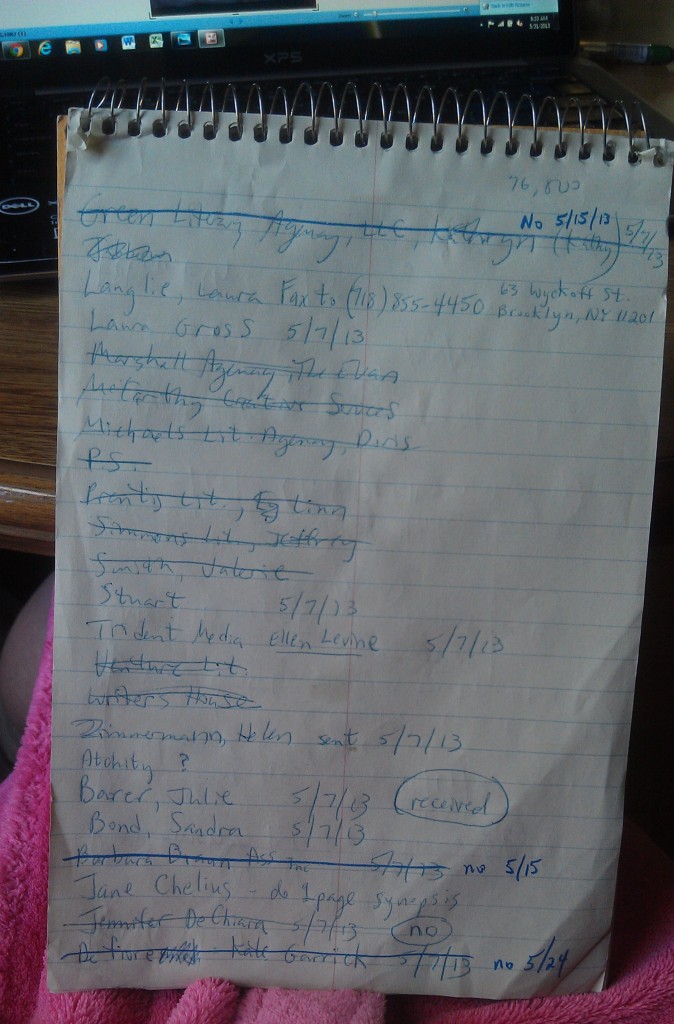 XPS
DELL
76,800
No 5/15/13
Green Literary Agency, LLC, Kathryn (Kathy) 5/7/13
Langlie, Laura Fax to (718) 855-4450 63 Wyckoff St.
Brooklyn, NY 11201
Laura Gross 5/7/13
Marshall Agency, The Evan
McCarthy Creative Services
Michaels Lit. Agency, Doris
P.S.
Lit., Linn
Simmons Lit., Jeffrey
Smith, Valerie
Stuart 5/7/13
Trident Media Ellen Levine 5/7/13
Venture Lit.
Writers House
Zimmermann, Helen sent 5/7/13
Atchity ?
Barer, Julie 5/7/13 received
Bond, Sandra 5/7/13
Barbara Braun Ass Inc 5/7/13 no 5/15
Jane Chelius - do 1 page synopsis
Jennifer DeChiara 5/7/13 no
DeFiore Kate Garrick 5/7/13 no 5/24